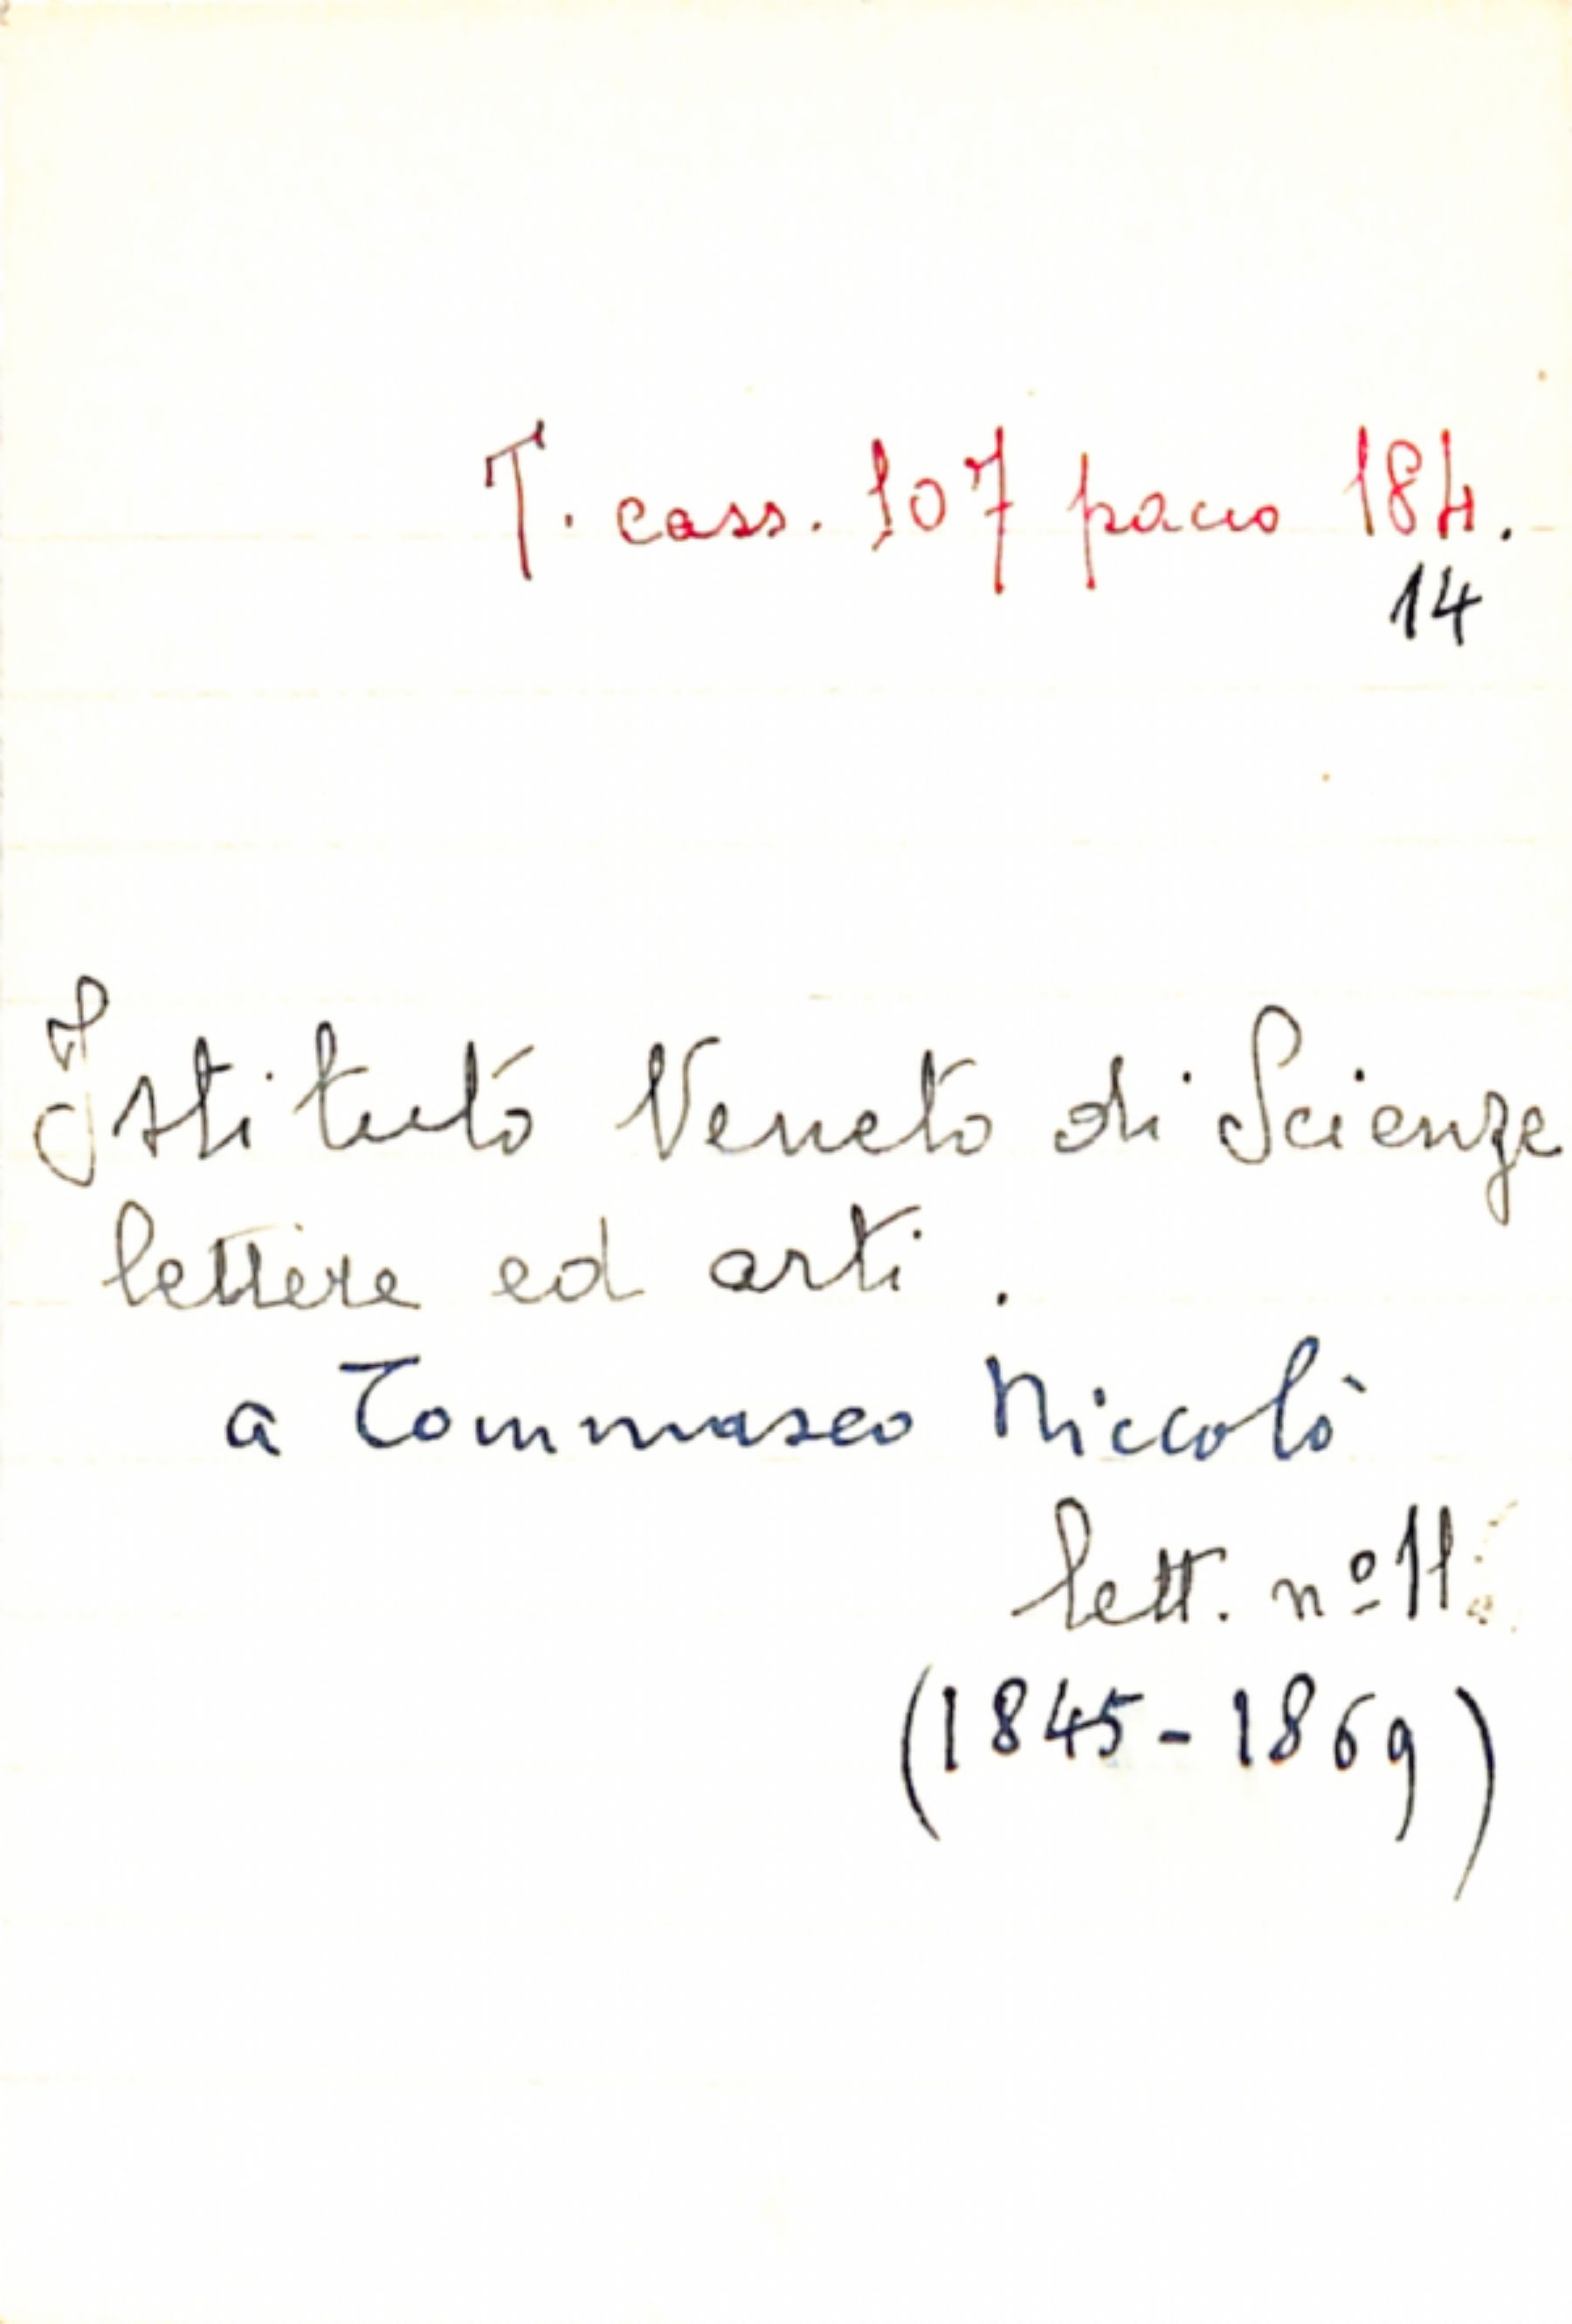 T. cass. 107 pacco 184.
14
Istituto Veneto di Scienze
lettere ed arti.
a Tommaseo Niccolò
lett. nº 11
(1845-1869)